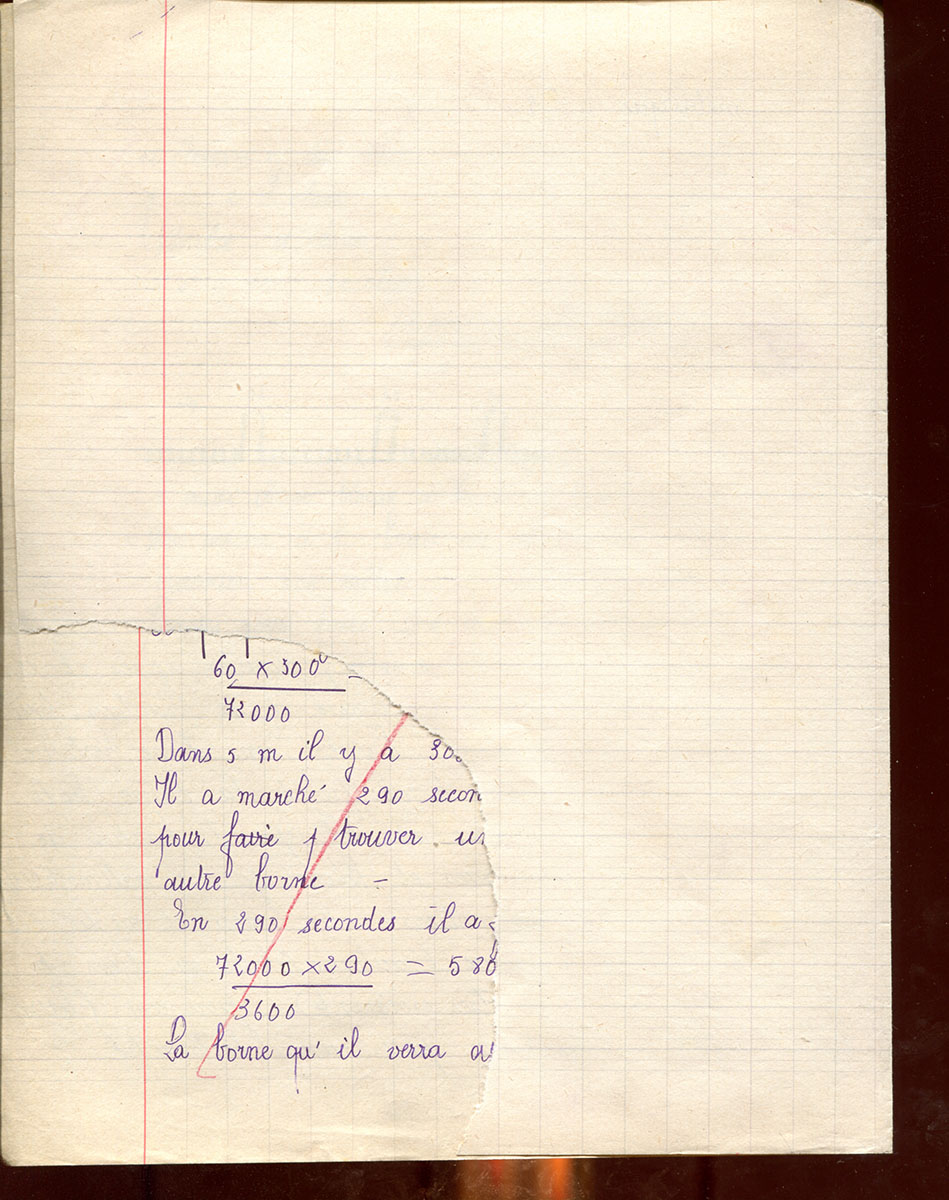 60 x 300
72000
Dans 5 m il y a 300
Il a marché 290 secon
pour faire trouver un
autre borne -
En 290 secondes il a
72000 x 290 = 580
3600
La borne qu'il verra a